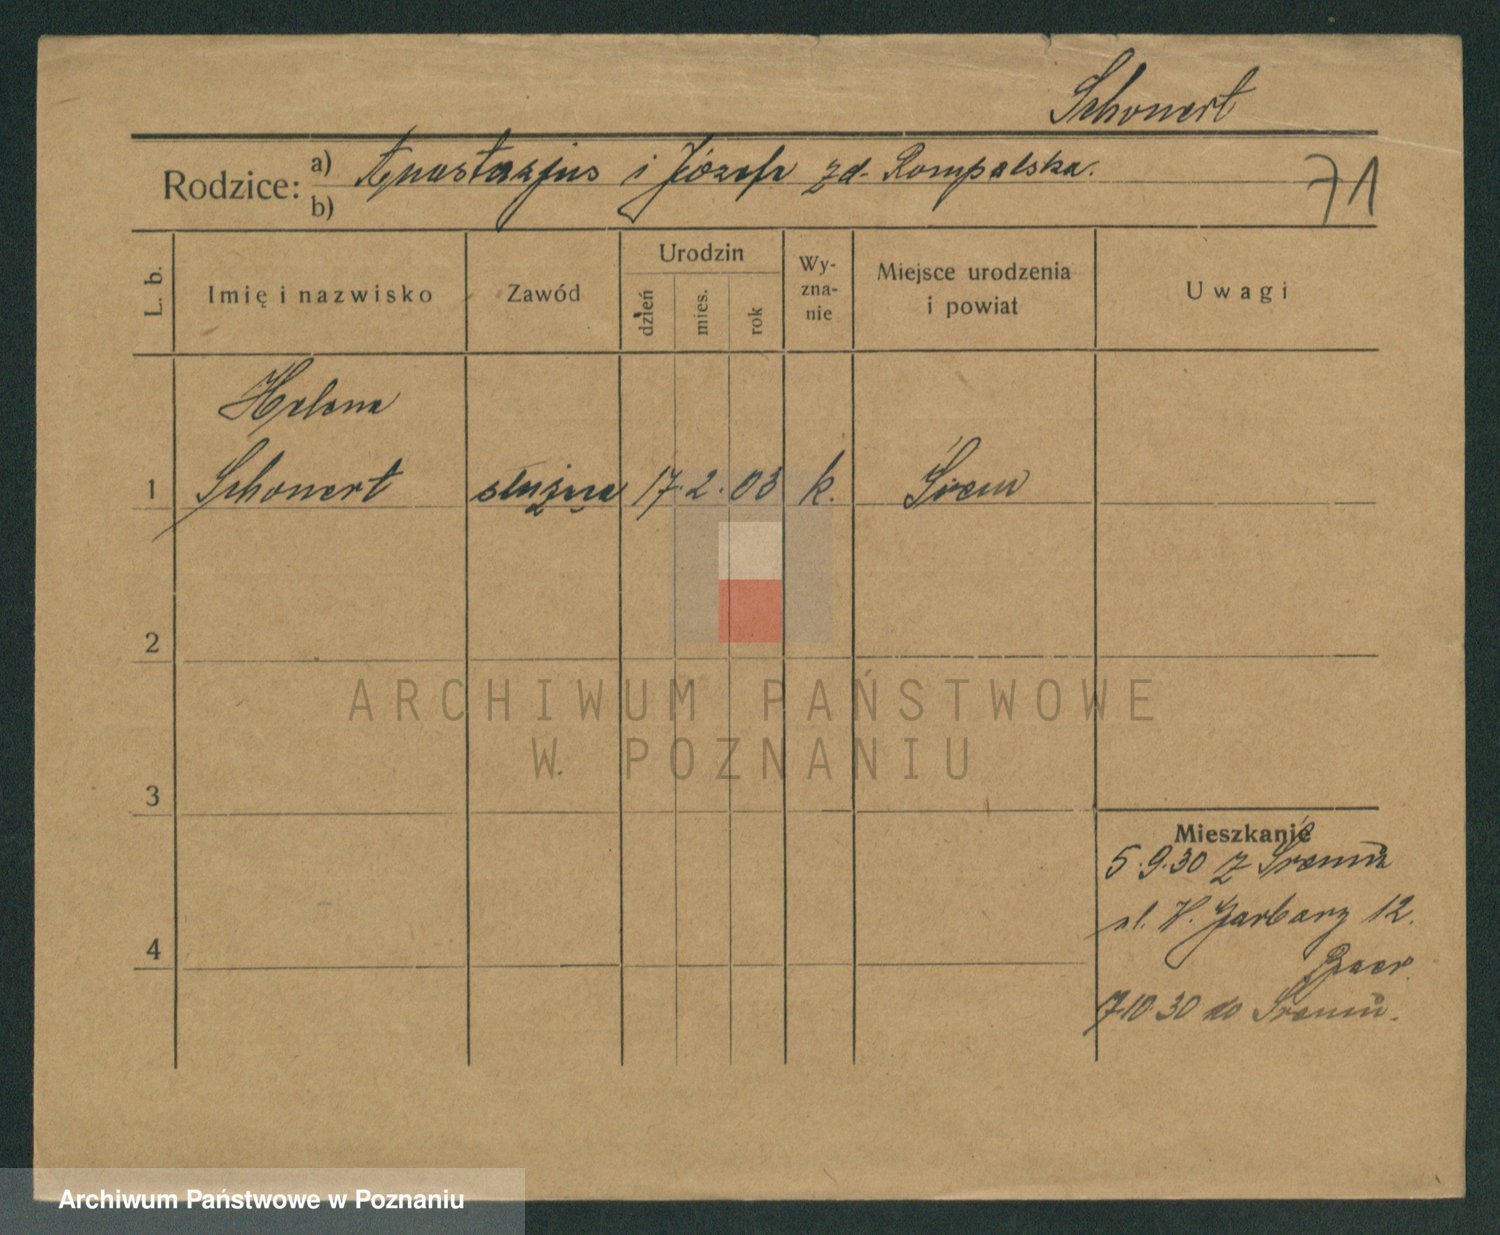 Schonert
Rodzice: a) Anastazjus i Józefa zd. Rompalska.
b)
71
L. b.
Imię i nazwisko
Zawód
Urodzin
dzień
mies.
rok
Wy-
zna-
nie
Miejsce urodzenia
i powiat
Uwagi
Helena
1 Schonert służąca 17. 2. 03 k. Śrem
2
ARCHIWUM PAŃSTWOWE
W POZNANIU
3
Mieszkanie
5.9.30 z Śremu
ul. W. Garbary 12.
4
7.10.30 do Śremu.
Archiwum Państwowe w Poznaniu